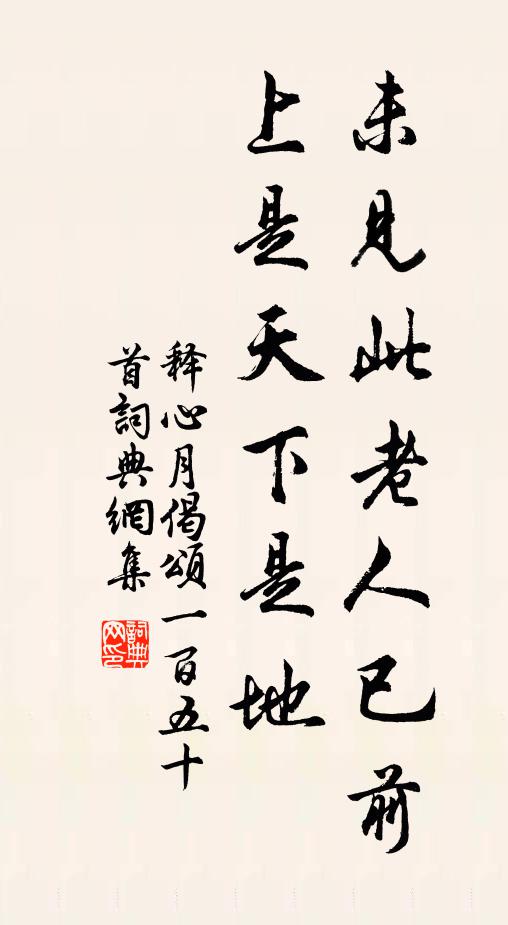 未見此老人已前
上是天下是地
释心月偈頌一百五十
首詞典網集
詞典
网印